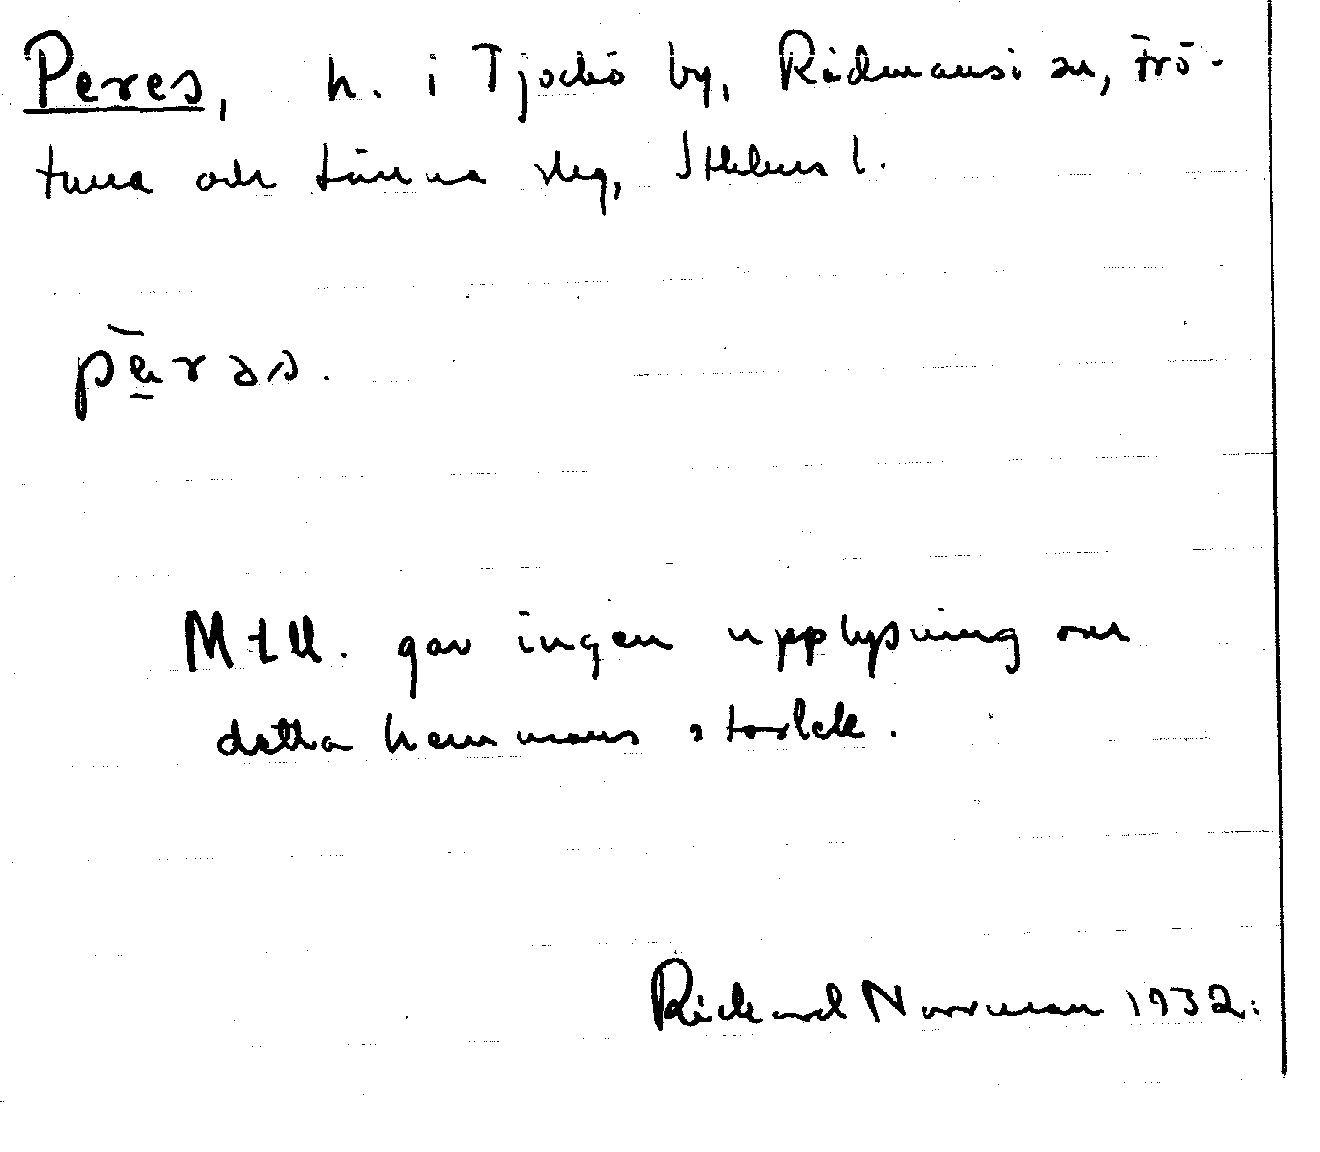 Peres, h. i Tjockö by, Rådmansö sn, Frö-
tuna och Länna slg, Sthlms l.
pè̱rəs.
Mtll. gav ingen upplysning om
detta hemmans storlek.
Rickard Norrman 1932.